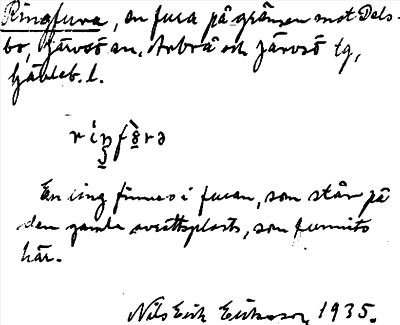 Ringfura, en fura på gränsen mot Dels-
bo, Järvsö an, Arbrå och Järvsö tg,
Gävleb. l.
En ring finnes i furan, som står på
den gamla avrättsplats, som funnits
här.
Nils Erik Eriksson, 1935.